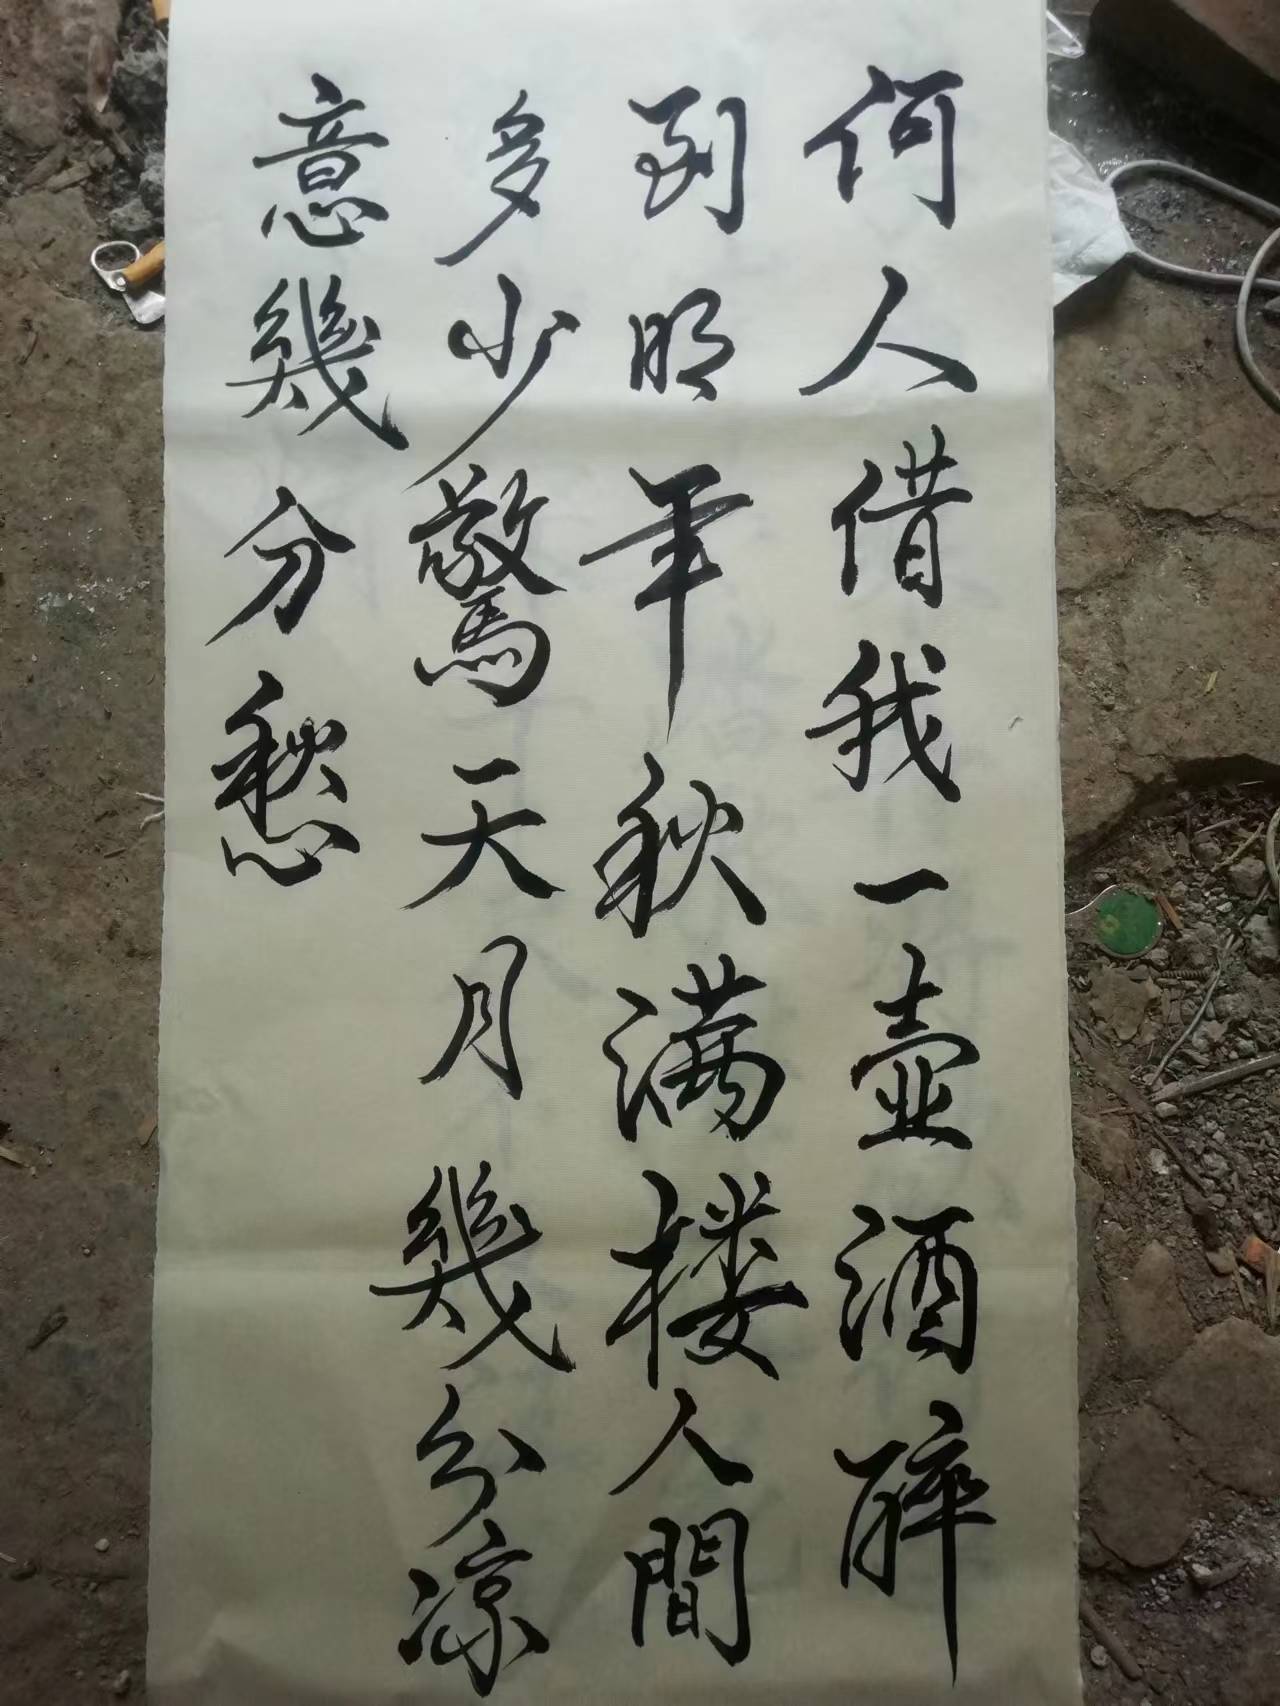 何人借我一壶酒醉
到明年秋满楼人間
多少驚天月幾分凉
意幾分愁